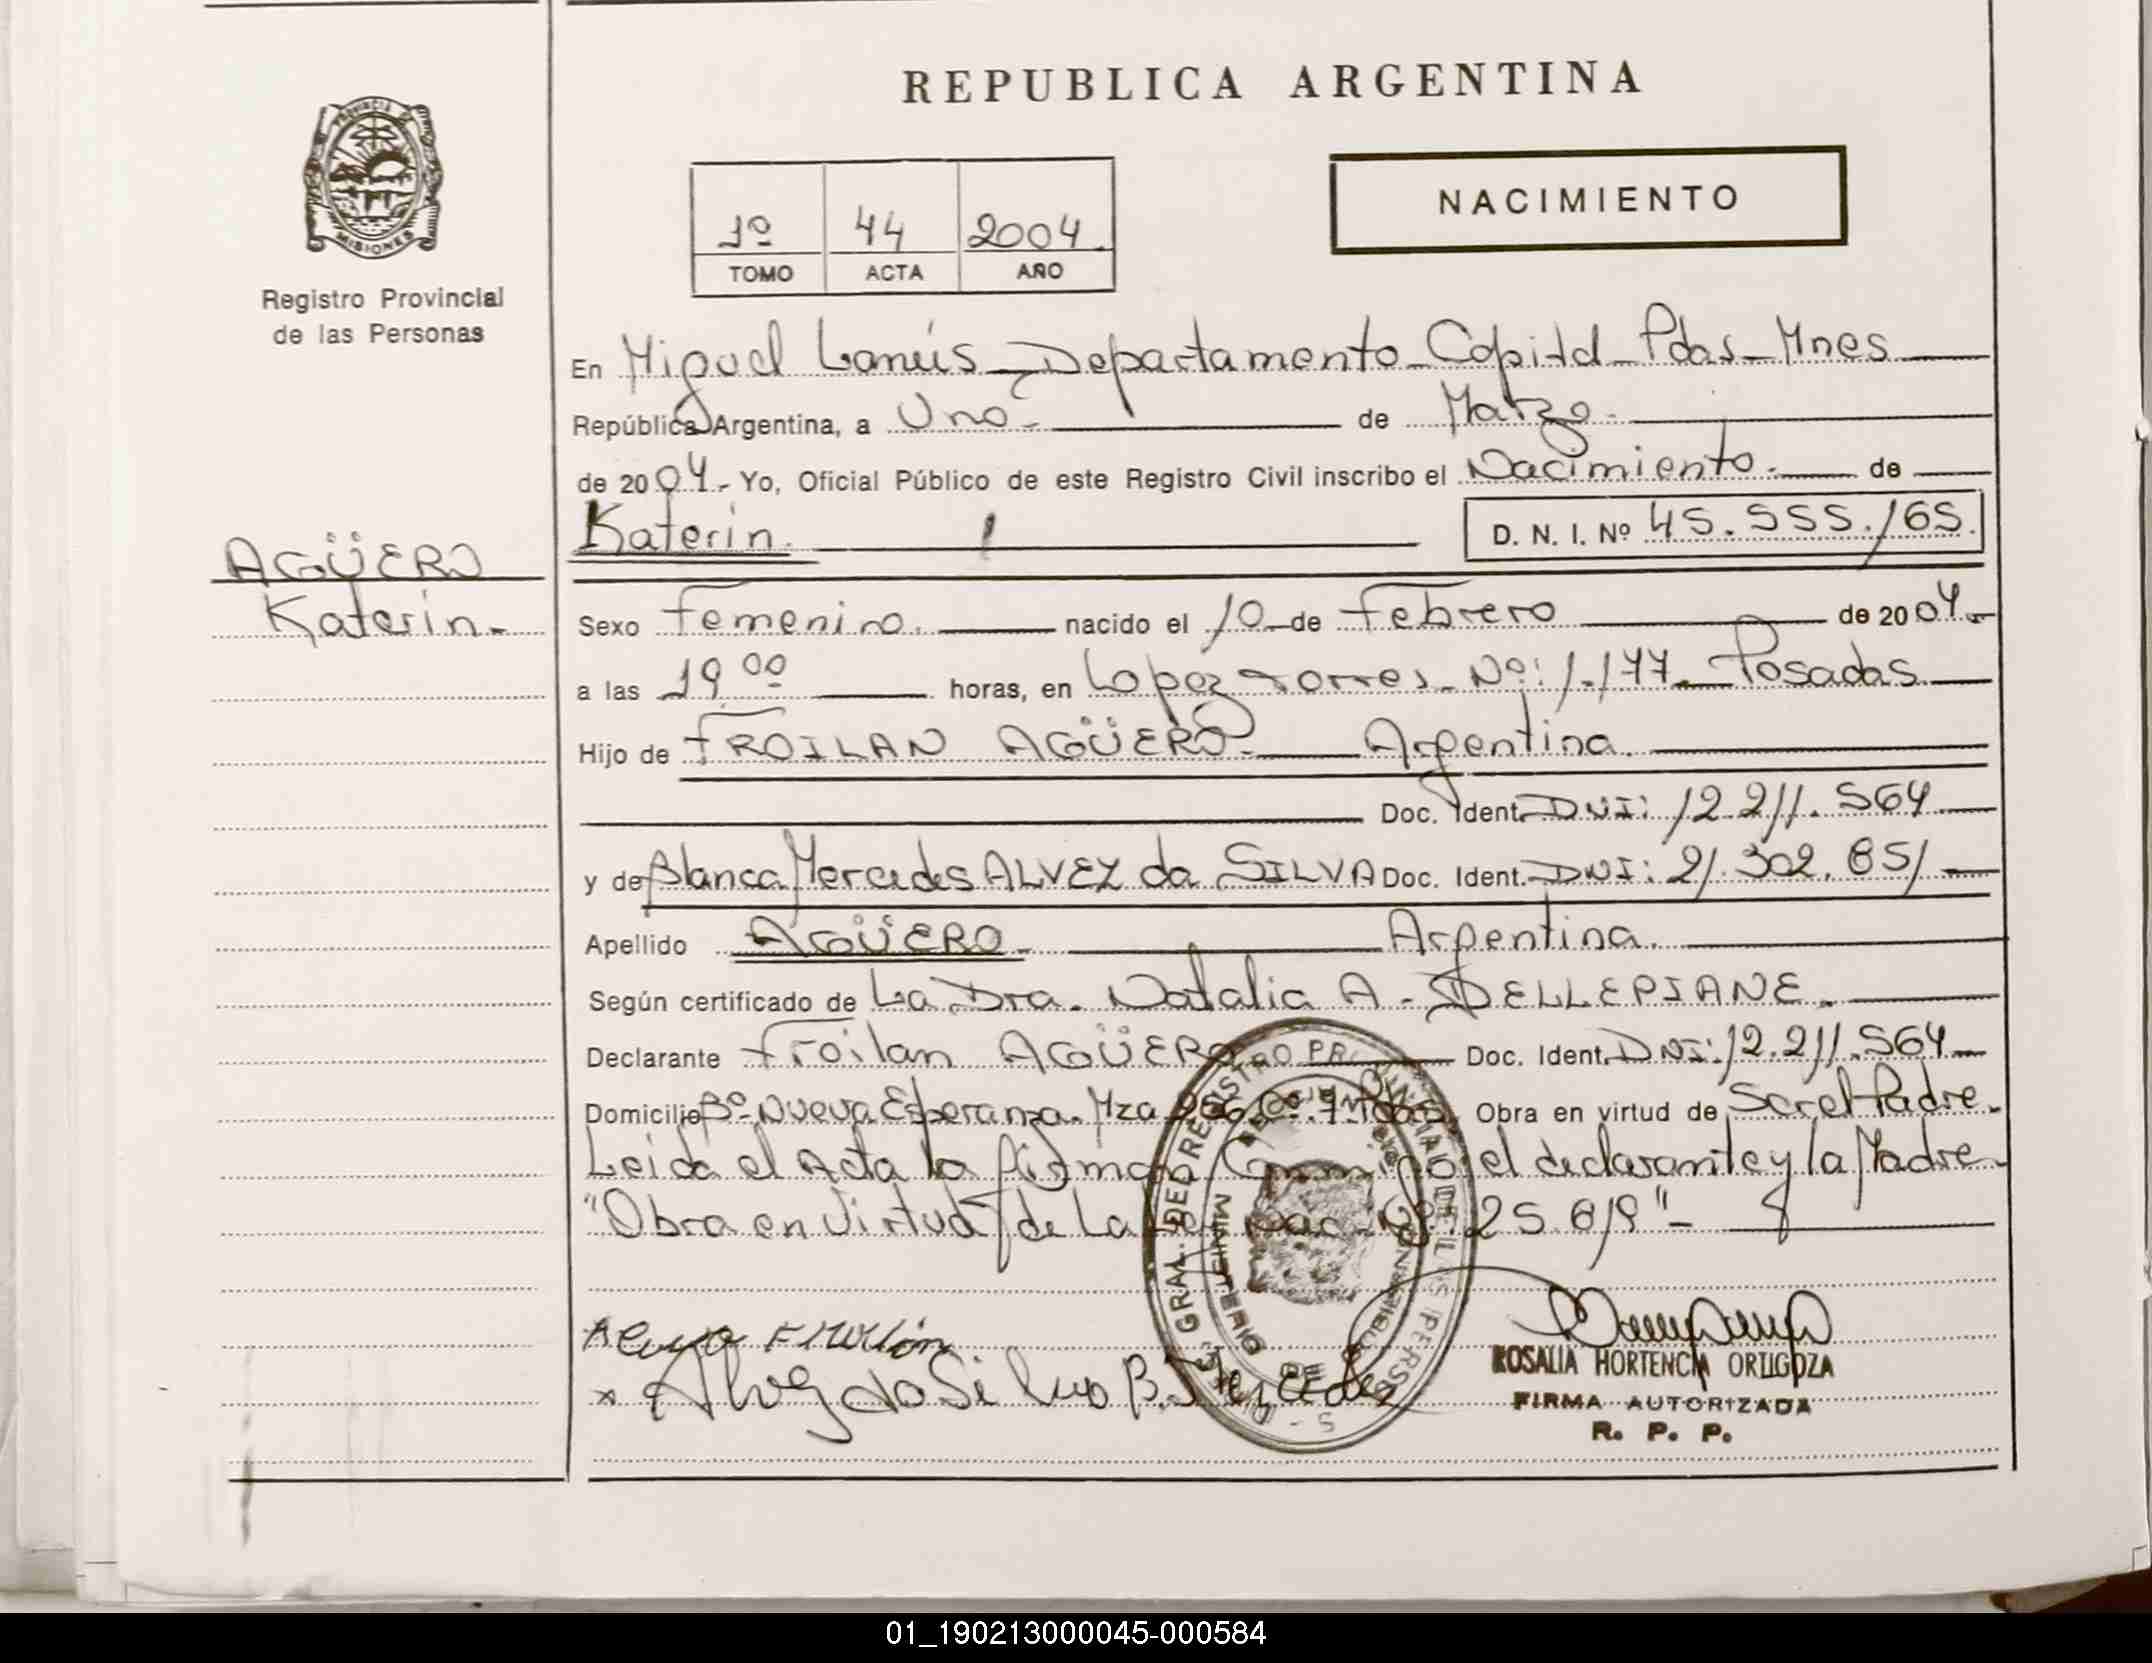 REPUBLICA ARGENTINA
PROVINCIA DE
MISIONES
Registro Provincial
de las Personas
1º 44 2004
TOMO ACTA AÑO
NACIMIENTO
En Miguel Lanús - Departamento Capital - Pdas - Mnes
República Argentina, a Uno.- de Marzo.
de 2004.- Yo, Oficial Público de este Registro Civil inscribo el Nacimiento. de
Katerin. D. N. I. Nº 45.555.165.
AGÜERO
Katerin.-
Sexo Femenino. nacido el 10 de Febrero de 2004.-
a las 19 00 horas, en Lopez Torres - Nº: 1.177 - Posadas
Hijo de FROILAN AGÜERO. Argentina.
Doc. Ident. DNI: 12.211.564
y de Blanca Mercedes ALVEZ da SILVA Doc. Ident. DNI: 21.302.851
Apellido AGÜERO. Argentina.
Según certificado de La Dra. Natalia A. DELLEPIANE.
Declarante Froilan AGÜERO Doc. Ident. DNI: 12.211.564
Domicilio Bº Nueva Esperanza. Mza Obra en virtud de Ser el Padre.
Leida el Acta la firman Conmigo el declarante y la Madre.
"Obra en Virtud de La Ley Nac. Nº. 25.819"-
x Alvez da Silva B. Mercedes
ROSALIA HORTENCIA ORTIGOZA
FIRMA AUTORIZADA
R. P. P.
01_190213000045-000584